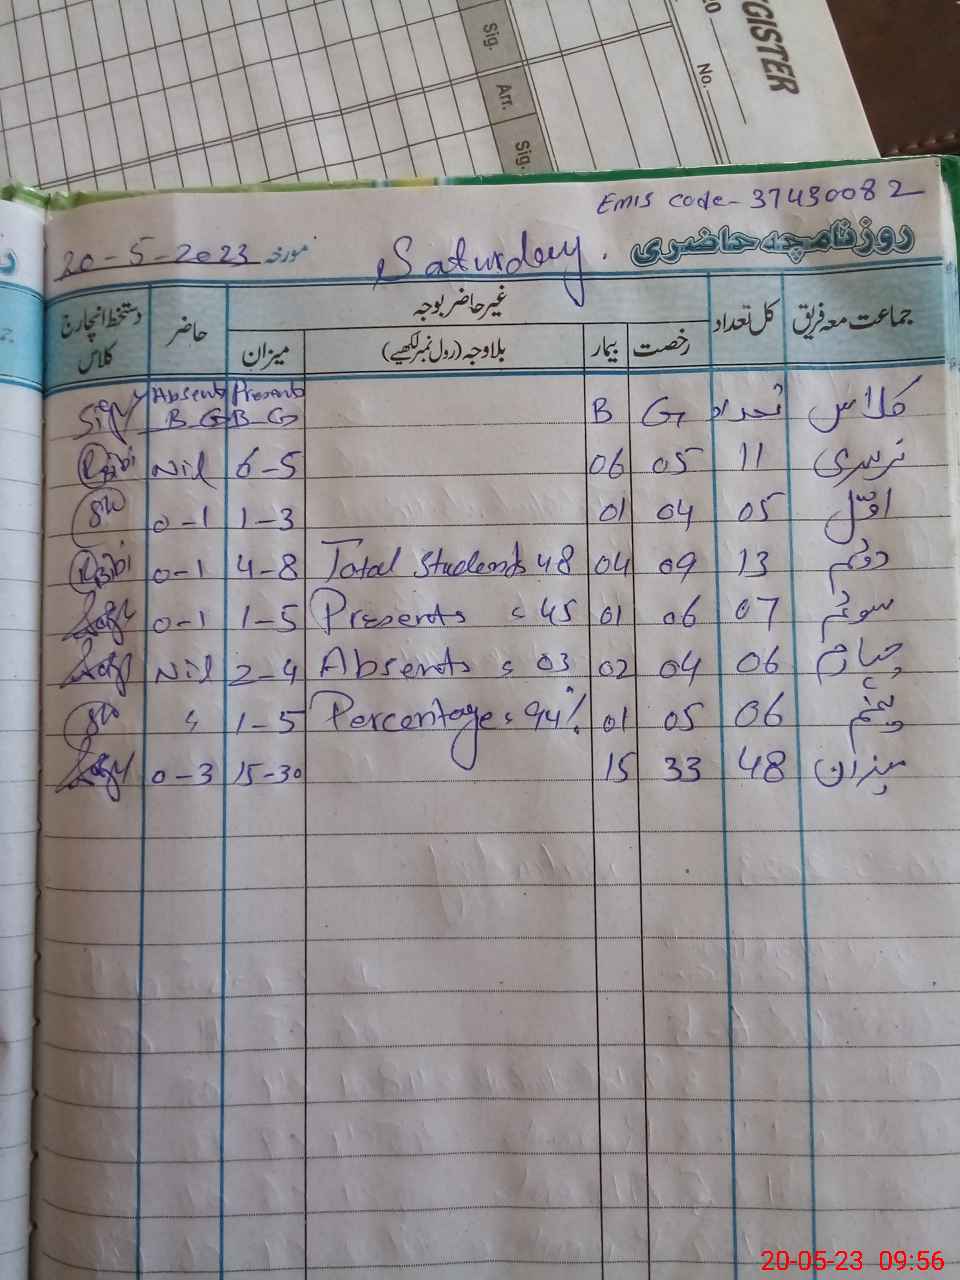 GISTER
20
No.
Sig.
Arr.
Sig.
EMIS code- 37430082
روزنامچہ حاضری
Saturday.
مورخہ 20-5-2023
جماعت معہ فریق کل تعداد غیر حاضر بوجہ حاضر دستخط انچارج کلاس
رخصت بیمار بلاوجہ (رول نمبر لکھیے) میزان
کلاس تعداد G B Presents B G Absents B G Sign
نرسری 11 05 06 6-5 Nil Bibi
اوّل 05 04 01 1-3 0-1
دوئم 13 09 04 Total Students 48 4-8 0-1 Bibi
سوئم 07 06 01 Presents = 45 1-5 0-1
چہارم 06 04 02 Absents = 03 2-4 Nil
پنجم 06 05 01 Percentage = 94% 1-5 "
میزان 48 33 15 15-30 0-3
20-05-23 09:56